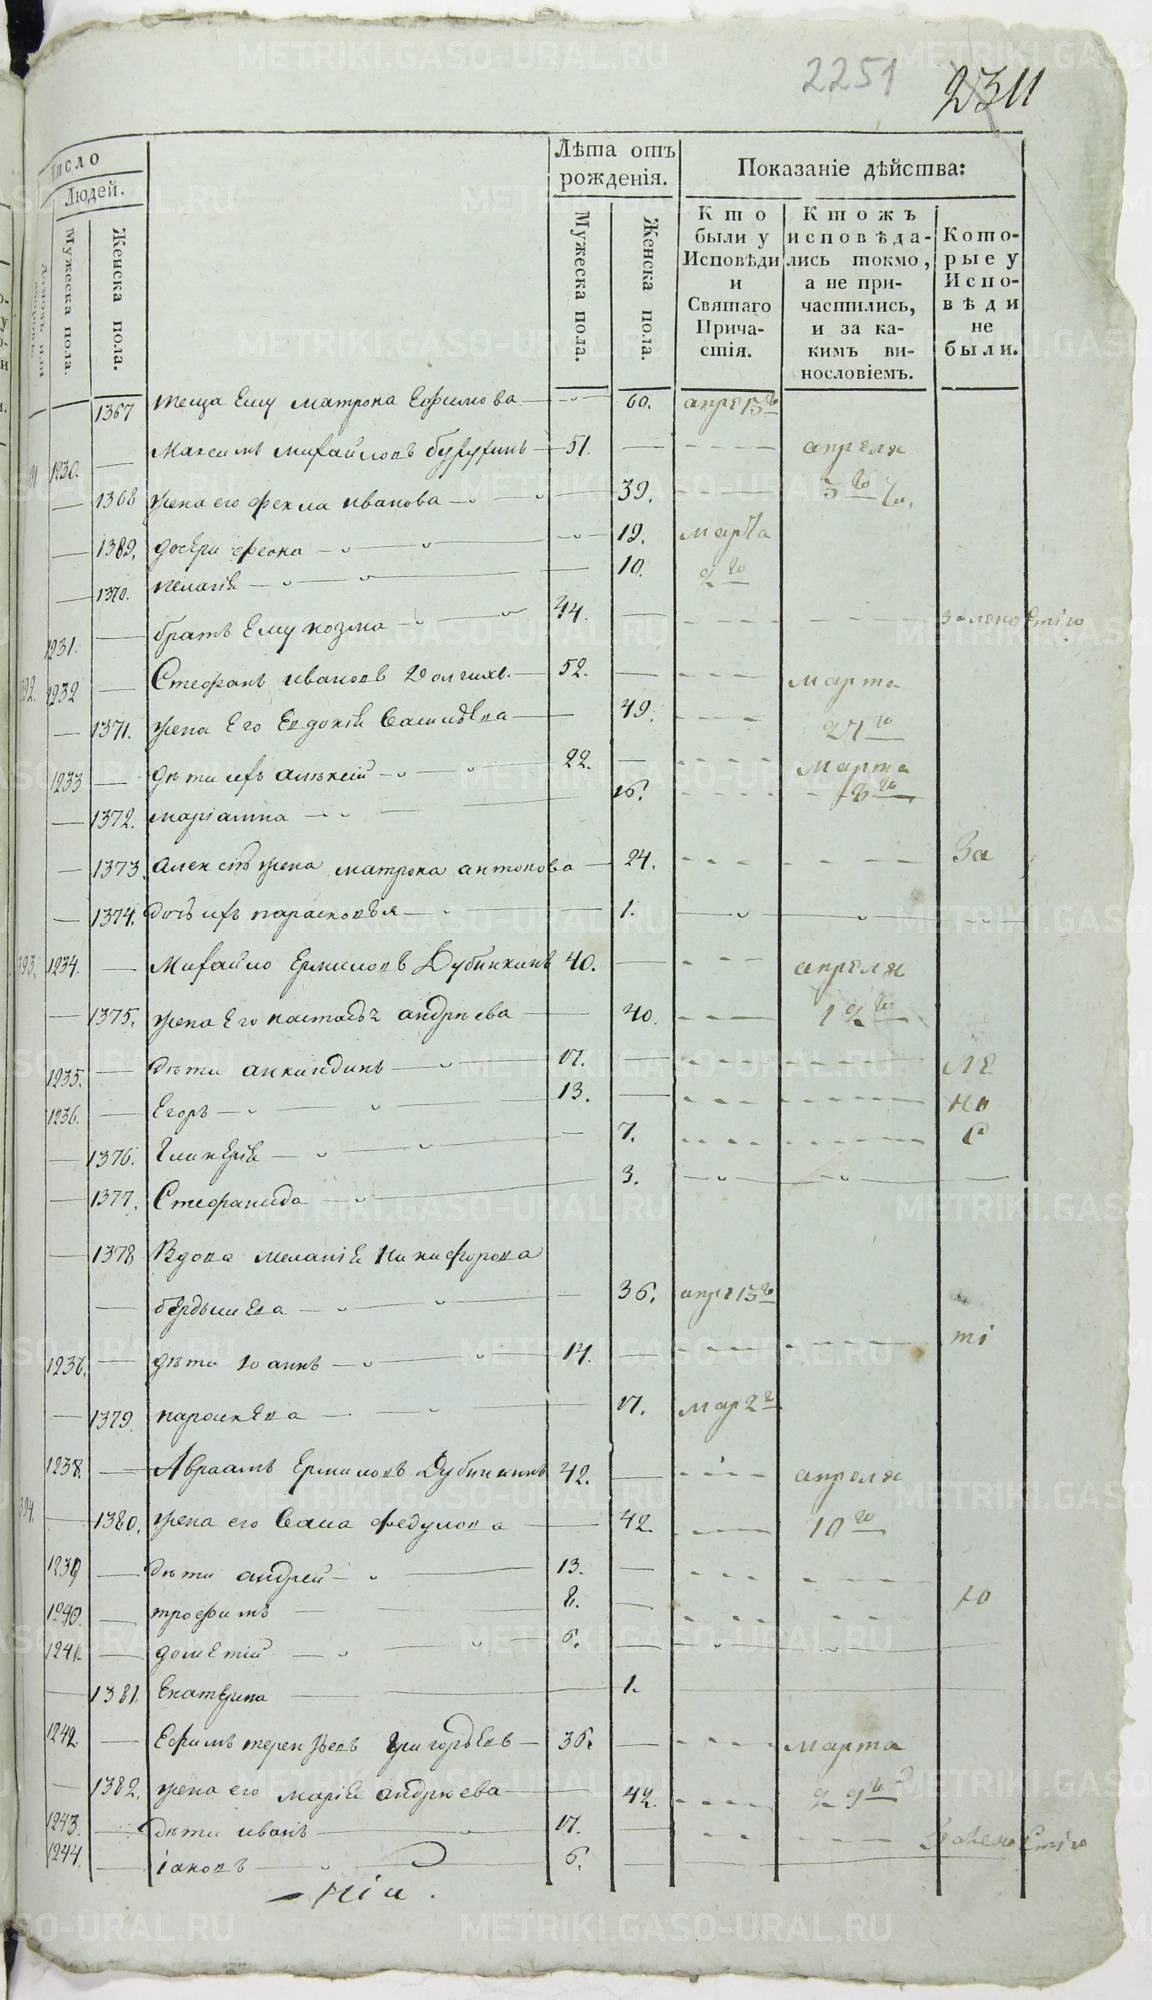 2251
2311
число
Людей.
Мужеска пола.
Женска пола.
Лѣта отъ рожденія.
Мужеска пола.
Женска пола.
Показаніе дѣйства:
Кто были у Исповѣди и Святаго Прича-стія.
Ктожъ исповѣда-лись токмо, а не при-частились, и за ка-кимъ ви-нословіемъ.
Кото-рые у Испо-вѣди не были.
1367 теща Ему матрона Ефимова 60. апре 13го
1230. Максимъ михайловъ 51. апреля
1368 жена его фекла иванова 39. 5го Ча.
1389. дочери феона 19. марта
1370. пелагія 10. 2го
1231. братъ Ему козма 44. за леностію
1232 Стефанъ ивановъ Долгихъ 52. марта
1371. жена Его Евдокія Василѣва 49. 27го
1233 дѣти ихъ алѣксій 22. марта
1372. маріамна 16.
1373 алексѣя жена матрона антонова 24. За
1374. дочь ихъ парасковья 1.
1234. Михайло Ермиловъ Дубинкинъ 40. апреля
1375. жена Его настасья андрѣева 40.
1235. дѣти анкиндинъ 17. ле
1236. Егоръ 13. но
1376. Гликерія 7. с
1377. Стефанида 3.
1378 Вдова меланія Никифорова
бердышева 36. апре 13го
1237. дѣти Іоаннъ 14. ті
1379. параскева 17. мар 2го
1238. Авраамъ Ермиловъ Дубинкинъ 42. апреля
1380. жена его Васа федулова 42. 10го
1239 дѣти андрей 13.
1240. трофимъ 8. ю
1241 дометій 6.
1381. Екатерина 1.
1242. Ефимъ терентьевъ Григорьевъ 36. марта
1382. жена его марія андрѣева 42. 29го
1243. дѣти иванъ 17. За леностію
1244. іаковъ 6.
METRIKI.GASO-URAL.RU